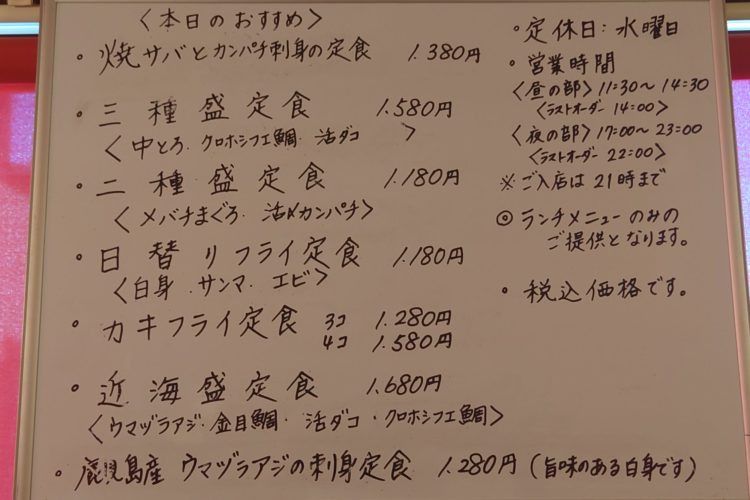 〈本日のおすすめ〉
・焼サバとカンパチ刺身の定食 1.380円
・三種盛定食 1.580円
〈中とろ. クロホシフエ鯛. 活ダコ 〉
・二種盛定食 1.180円
〈メバチまぐろ. 活〆カンパチ〉
・日替りフライ定食 1.180円
〈白身. サンマ. エビ〉
・カキフライ定食 3コ 1.280円
4コ 1.580円
・近海盛定食 1.680円
〈ウマヅラアジ・金目鯛・活ダコ・クロホシフエ鯛〉
・鹿児島産 ウマヅラアジの刺身定食 1.280円 (旨味のある白身です)
・定休日: 水曜日
・営業時間
〈昼の部〉 11:30〜14:30
〈ラストオーダー 14:00〉
〈夜の部〉 17:00〜23:00
〈ラストオーダー 22:00〉
※ご入店は21時まで
◎ランチメニューのみの
ご提供となります。
・税込価格です。